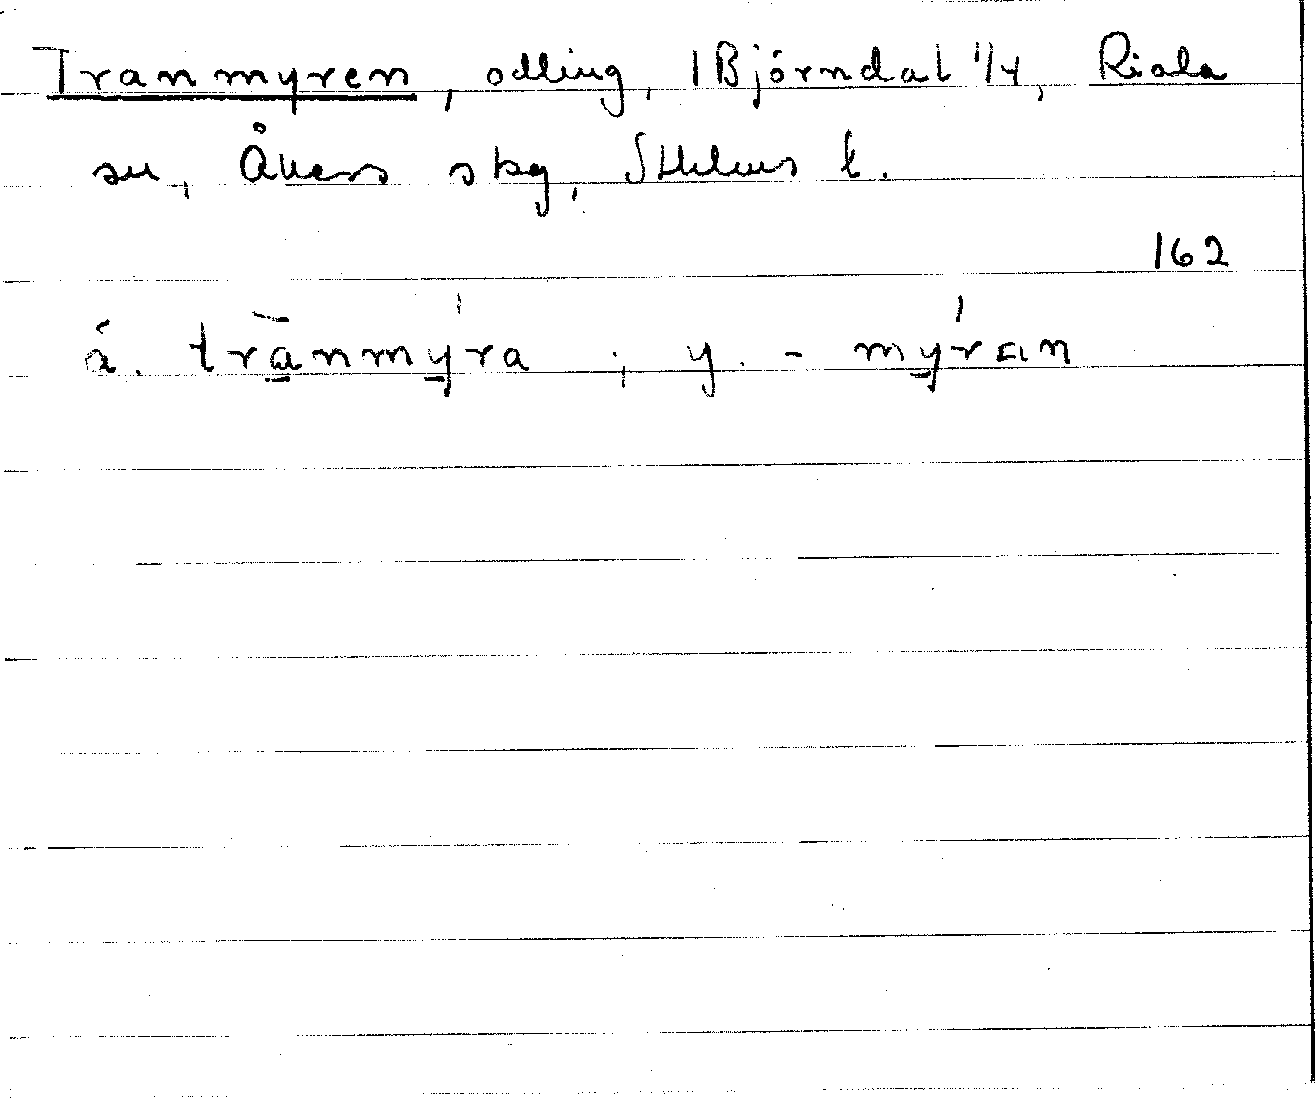 Tranmyren, odling, 1 Björndal 1/4, Riala
sn, Åkers skg, Sthlms l.
162
ä. trànmýra ; y. - mýran